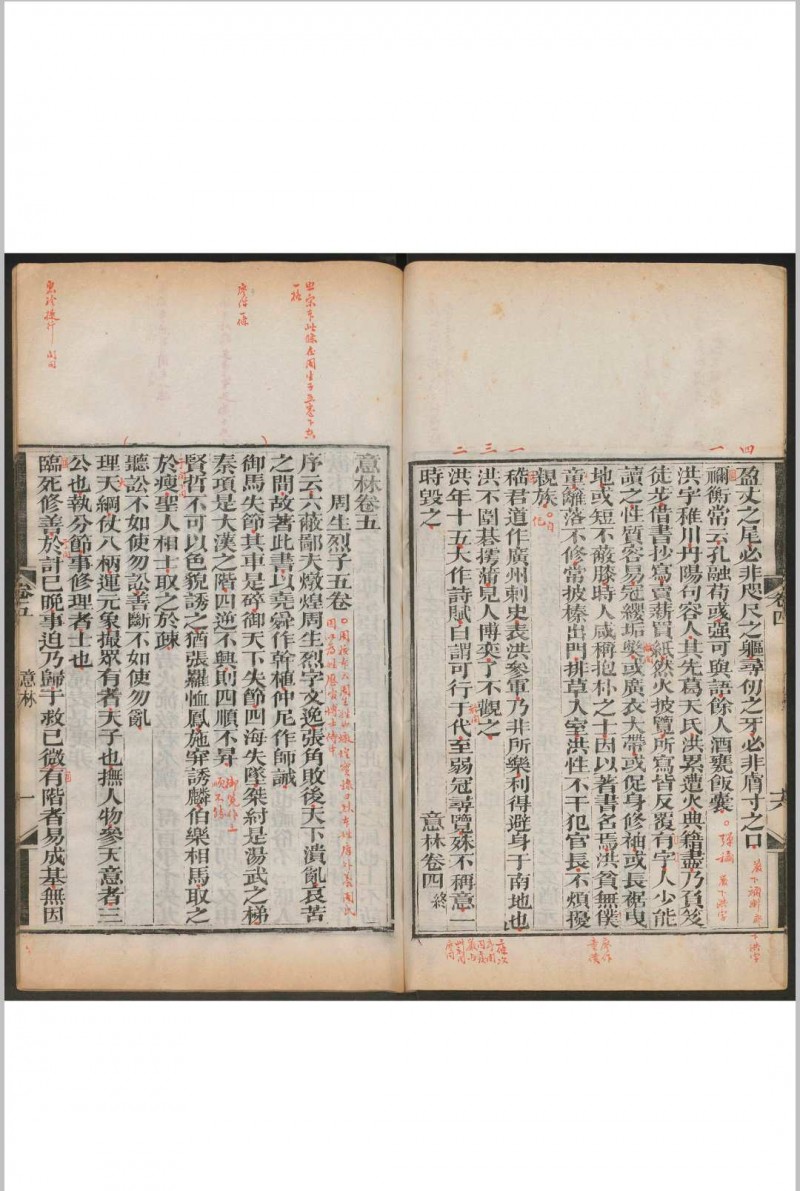 盈丈之尾必非咫尺之軀尋仞之牙必非膚寸之口
禰衡常云孔融荀彧强可與語餘人酒甕飯囊
洪字稚川丹陽句容人其先葛天氏洪累遭火典籍盡乃負笈
徒步借書抄寫賣薪買紙然火披覽所寫皆反覆有字人少能
讀之性質容易冠纓垢獘或廣衣大帶或促身修袖或長裾曳
地或短不蔽膝時人咸稱抱朴之士因以著書名焉洪貧無僕
童籬落不修常披榛出門排草入室洪性不干犯官長不煩擾
親族
嵇君道作廣州刺史表洪參軍乃非所樂利得避身于南地也
洪不圍棊摴蒲見人博奕了不觀之
洪年十五大作詩賦自謂可行于代至弱冠尋覽殊不稱意一
時毀之
意林卷四 終
卷四
意林卷五
周生烈子五卷
序云六蔽鄙夫燉煌周生烈字文逸張角敗後天下潰亂哀苦
之間故著此書以堯舜作幹植仲尼作師誡
御馬失節其車是碎御天下失節四海失墜桀紂是湯武之梯
秦項是大漢之階四逆不興則四順不昇
賢哲不可以色貌誘之猶張羅恤鳳施穽誘麟伯樂相馬取之
於瘦聖人相士取之於疎
聽訟不如使勿訟善斷不如使勿亂
理天綱仗八柄運元象撮眾有者天子也撫人物參天意者三
公也執分節事修理者士也
臨死修善於計已晚事迫乃歸于救已微有階者易成基無因
卷五
意林
一
四
一
一
三
二